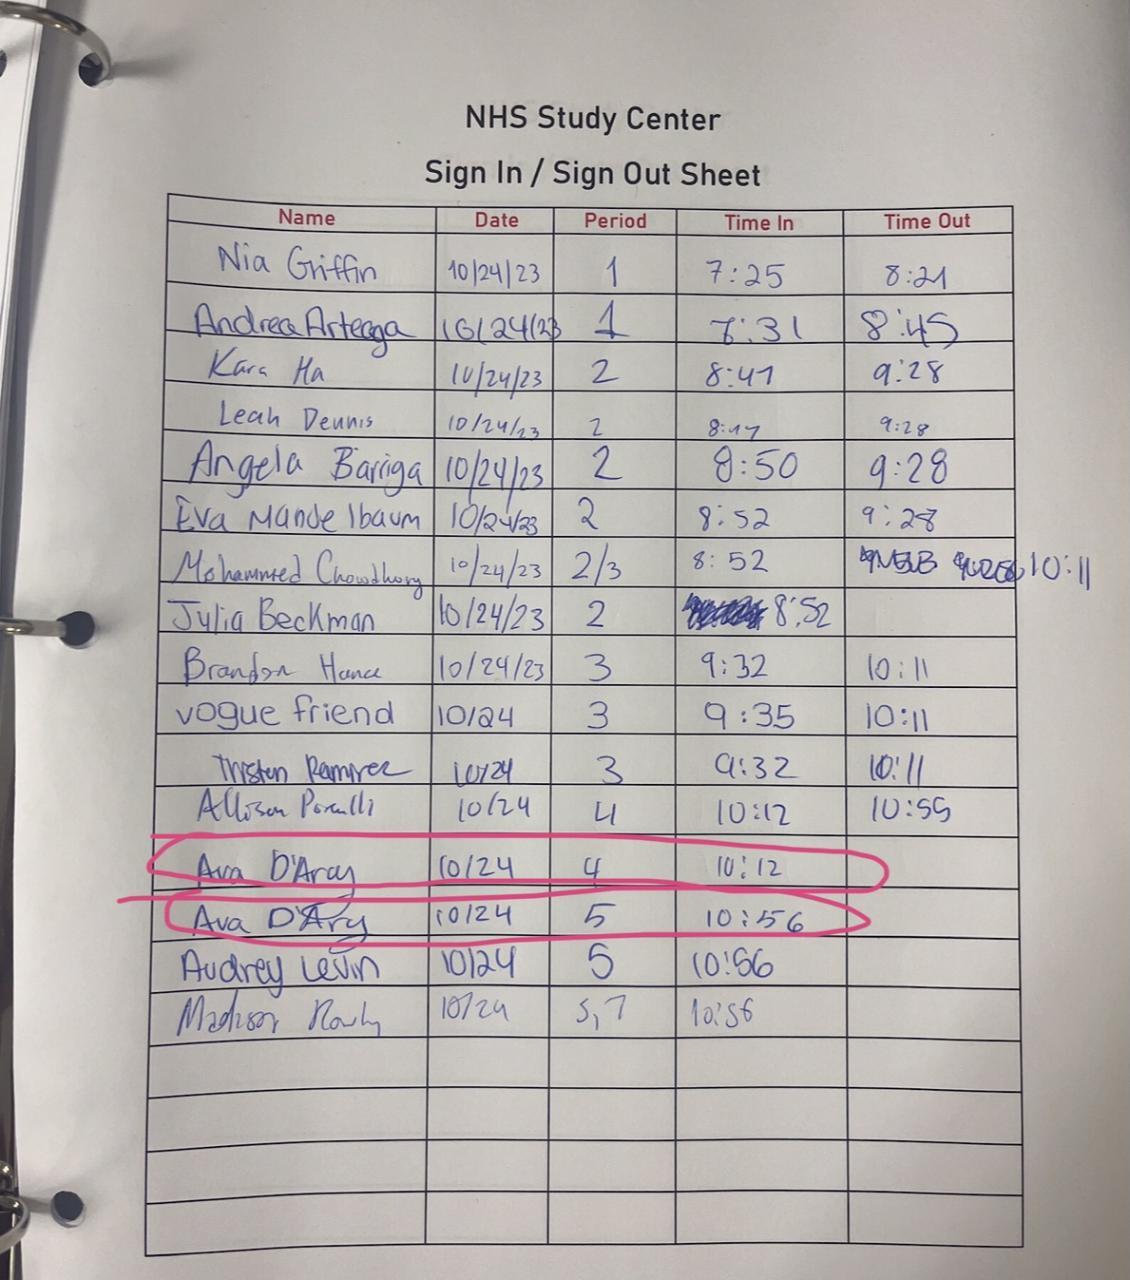 NHS Study Center
Sign In / Sign Out Sheet
Name Date Period Time In Time Out
Nia Griffin 10/24/23 1 7:25 8:21
Andrea Arteaga 10/24/23 1 7:31 8:45
Kara Ha 10/24/23 2 8:47 9:28
Leah Dennis 10/24/23 2 8:47 9:28
Angela Barriga 10/24/23 2 8:50 9:28
Eva Mandelbaum 10/24/23 2 8:52 9:28
Mohammed Chowdhury 10/24/23 2/3 8:52 10:11
Julia Beckman 10/24/23 2 8:52
Brandon Hance 10/24/23 3 9:32 10:11
vogue friend 10/24 3 9:35 10:11
Tristen Ramirez 10/24 3 9:32 10:11
Allison 10/24 4 10:12 10:55
Ava D'Arcy 10/24 4 10:12
Ava D'Arcy 10/24 5 10:56
Audrey Levin 10/24 5 10:56
Madison 10/24 5,7 10:56